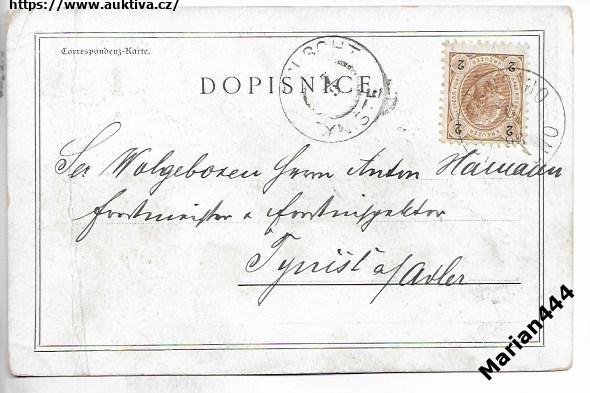 https://www.auktiva.cz/
Correspondenz-Karte.
DOPISNICE
2 2
2 2
Ser Wolgeboren Herrn Anton Hamann
Forstmeister & Forstinspektor
Tyništ a/Adler
Marian444